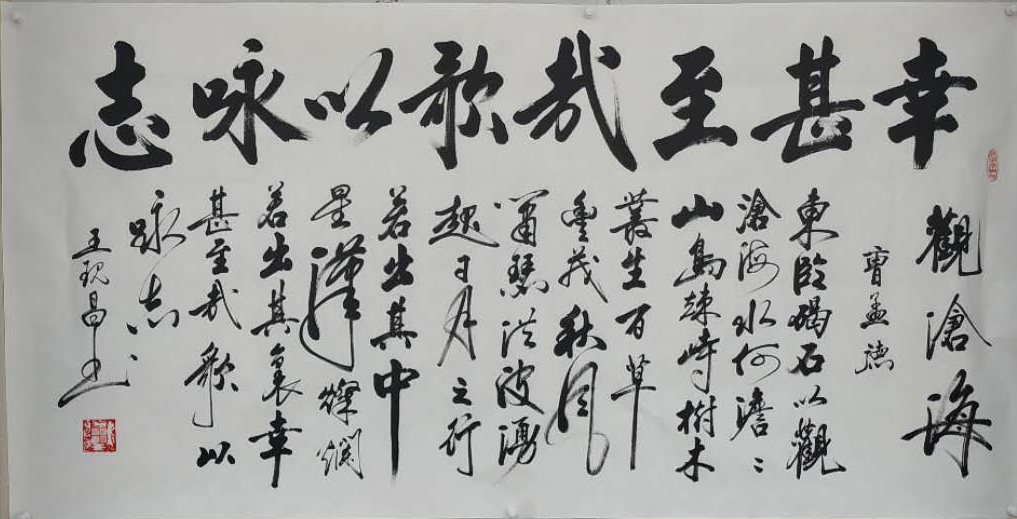 幸甚至哉歌以咏志
觀滄海
曹孟德
東臨碣石以觀
滄海水何澹〻
山島竦峙樹木
叢生百草
豐茂秋風
蕭瑟洪波湧
起日月之行
若出其中
星漢燦爛
若出其裏幸
甚至哉歌以
咏志
王现昌书